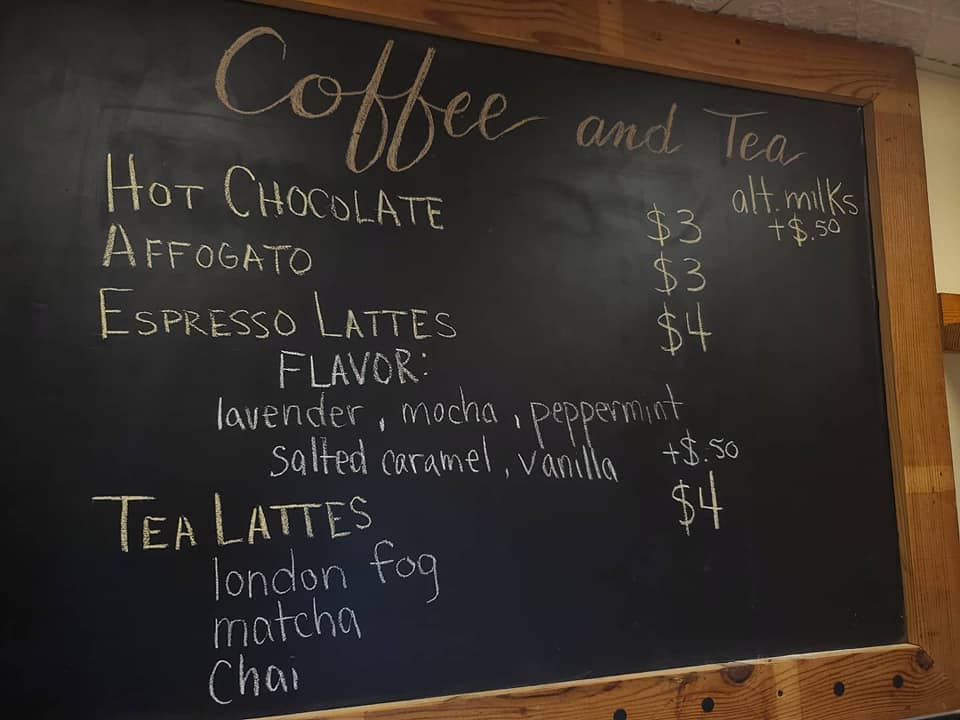 Coffee and Tea
alt. milks
+$.50
HOT CHOCOLATE $3
AFFOGATO $3
ESPRESSO LATTES $4
FLAVOR:
lavender, mocha, peppermint
salted caramel, vanilla +$.50
TEA LATTES $4
london fog
matcha
Chai